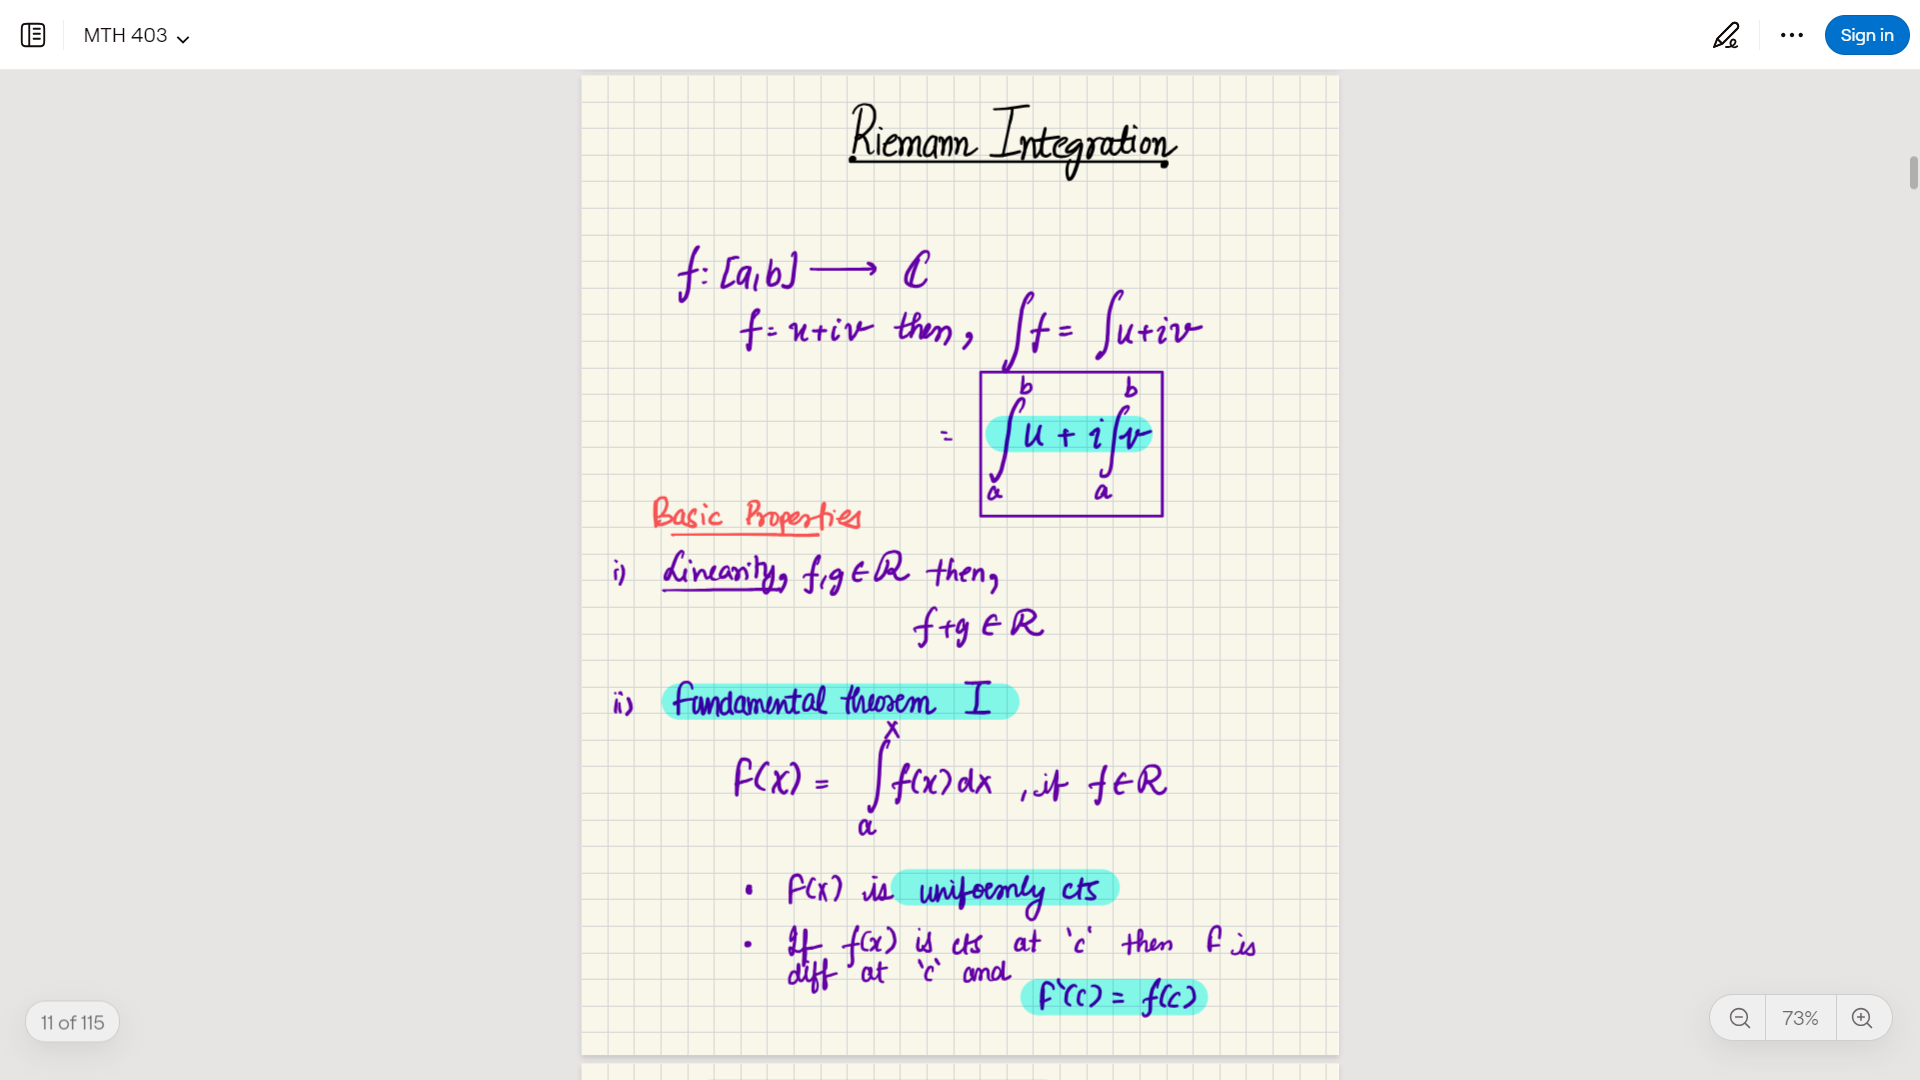 MTH 403
Sign in
Riemann Integration
f: [a,b] ⟶ ℂ
f = u+iv then, ∫f = ∫u+iv
= ∫_a^b u + i∫_a^b v
Basic Properties
i) Linearity, f,g ∈ ℛ then,
f+g ∈ ℛ
ii) Fundamental theorem I
F(x) = ∫_a^x f(x)dx , if f ∈ ℛ
• F(x) is uniformly cts
• If f(x) is cts at 'c' then F is
diff at 'c' and
F'(c) = f(c)
11 of 115
73%